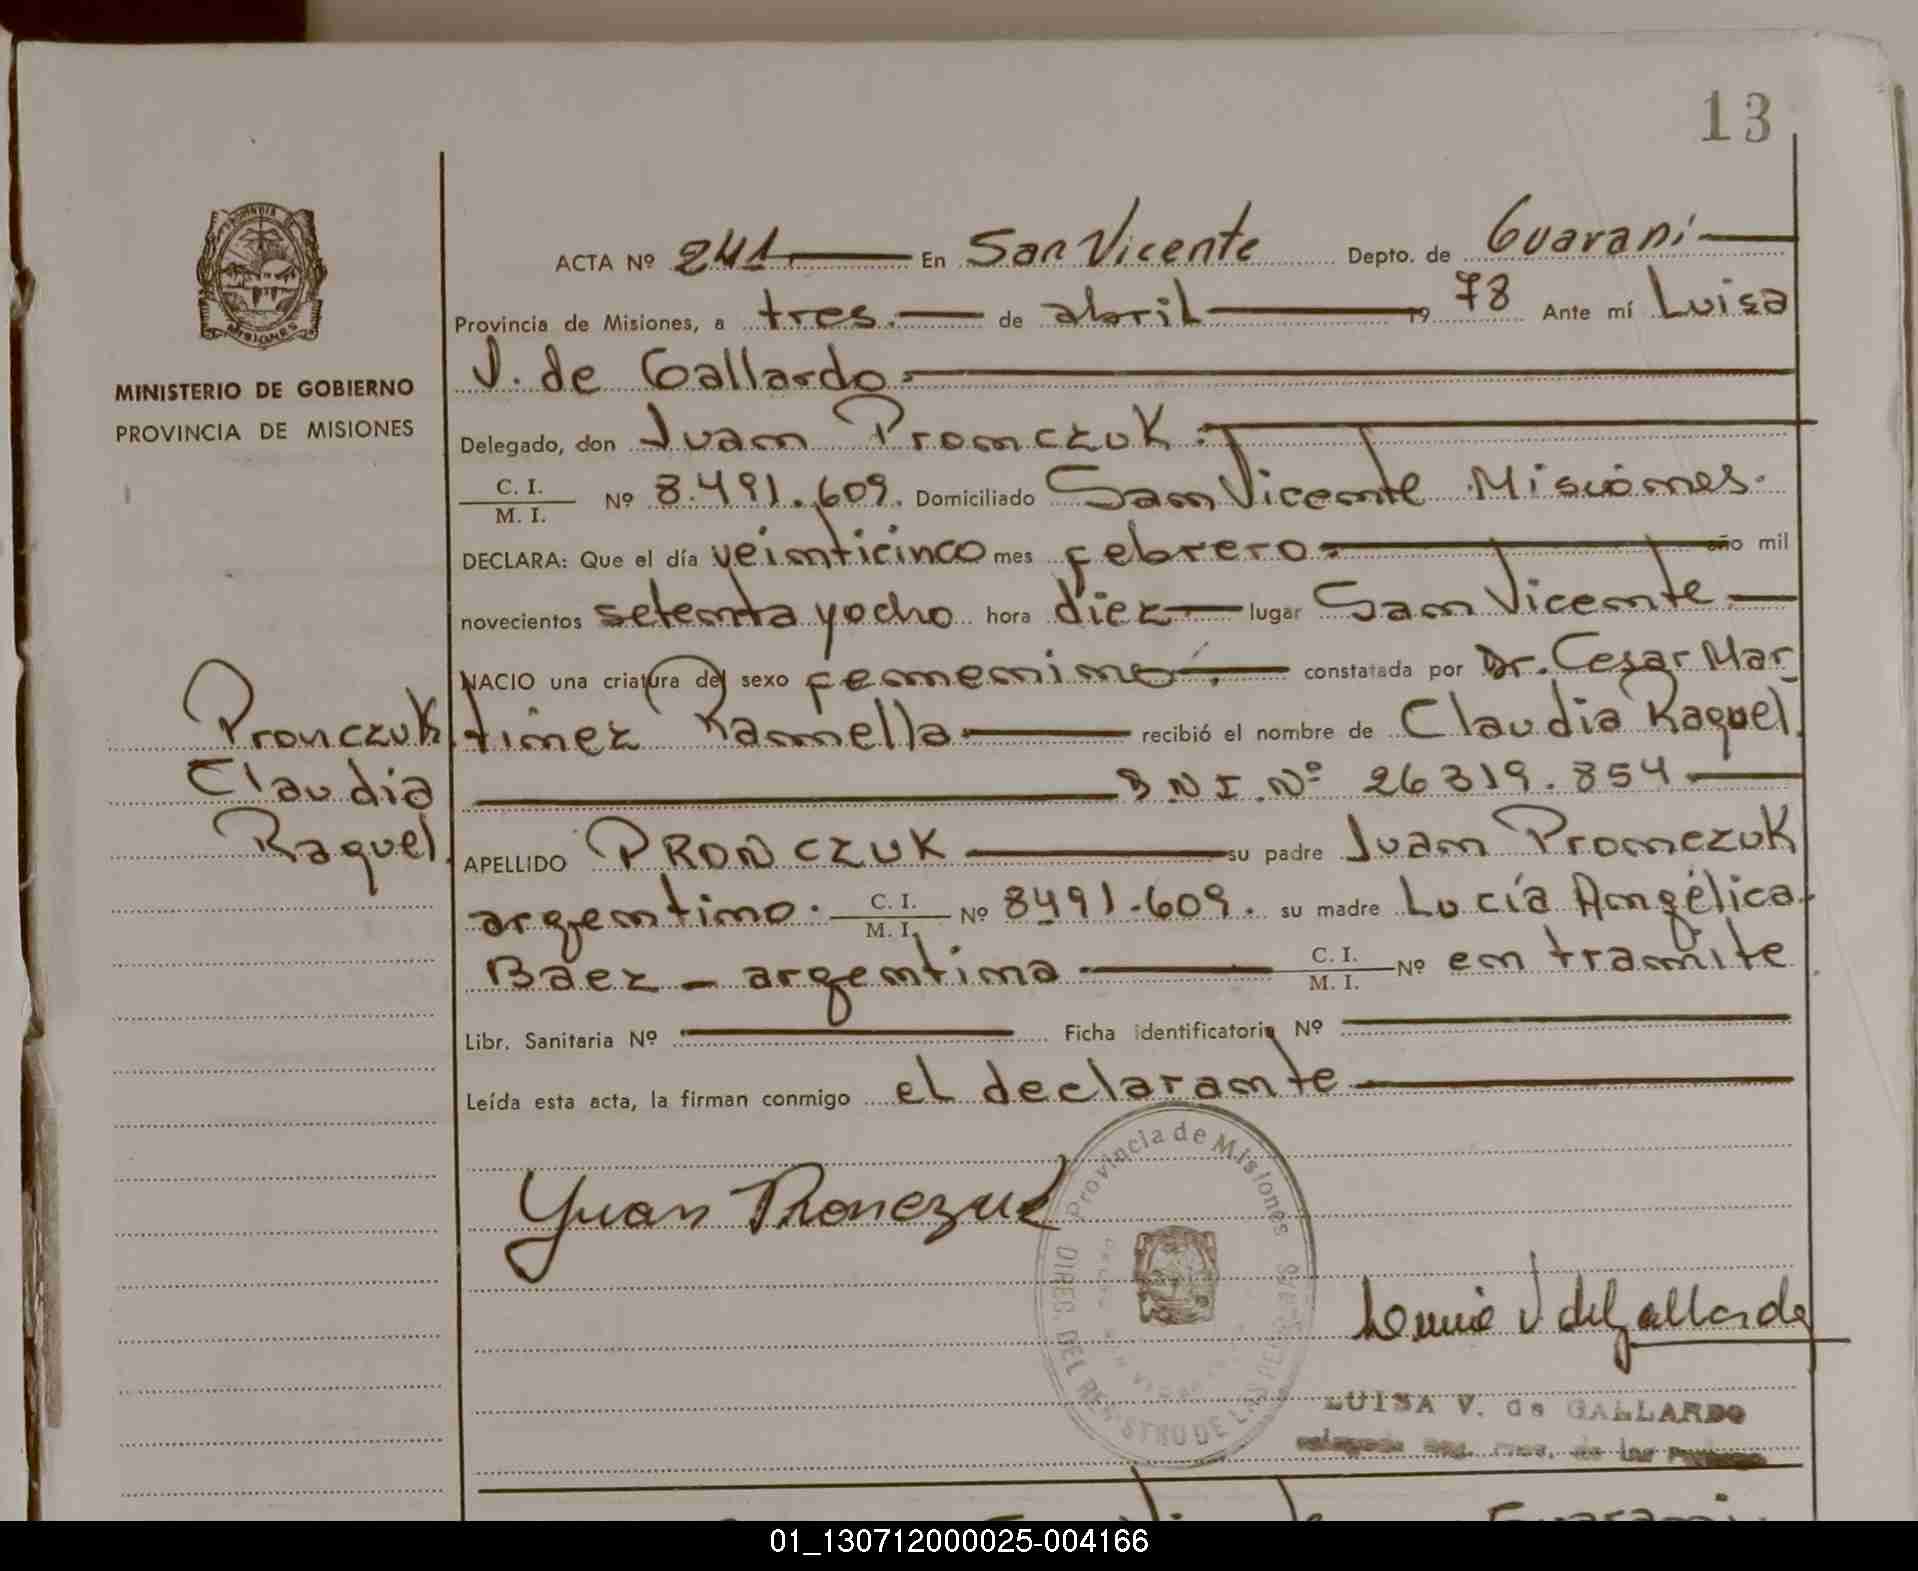 13
MINISTERIO DE GOBIERNO
PROVINCIA DE MISIONES
ACTA Nº 241 En San Vicente Depto. de Guaraní
Provincia de Misiones, a tres. de abril 19 78 Ante mí Luisa
V. de Gallardo.
Delegado, don Juan Pronczuk.
C. I.
M. I. Nº 8.491.609. Domiciliado San Vicente Misiones.
DECLARA: Que el día veinticinco mes febrero. año mil
novecientos setenta y ocho hora diez lugar San Vicente.
NACIO una criatura del sexo femenino. constatada por Dr. Cesar Mar
tinez Ramella recibió el nombre de Claudia Raquel.
D.N.I. Nº 26319.854
APELLIDO PRONCZUK su padre Juan Pronczuk
argentino. C. I.
M. I. Nº 8491.609. su madre Lucía Angélica
Baez - argentina C. I.
M. I. Nº en tramite
Libr. Sanitaria Nº Ficha identificatoria Nº
Leída esta acta, la firman conmigo el declarante
Pronczuk
Claudia
Raquel.
Yuan Pronczuk
Provincia de Misiones
DIREC. DEL REGISTRO DE LAS PERSONAS
V de Gallardo
LUISA V. de GALLARDO
de las
01_130712000025-004166